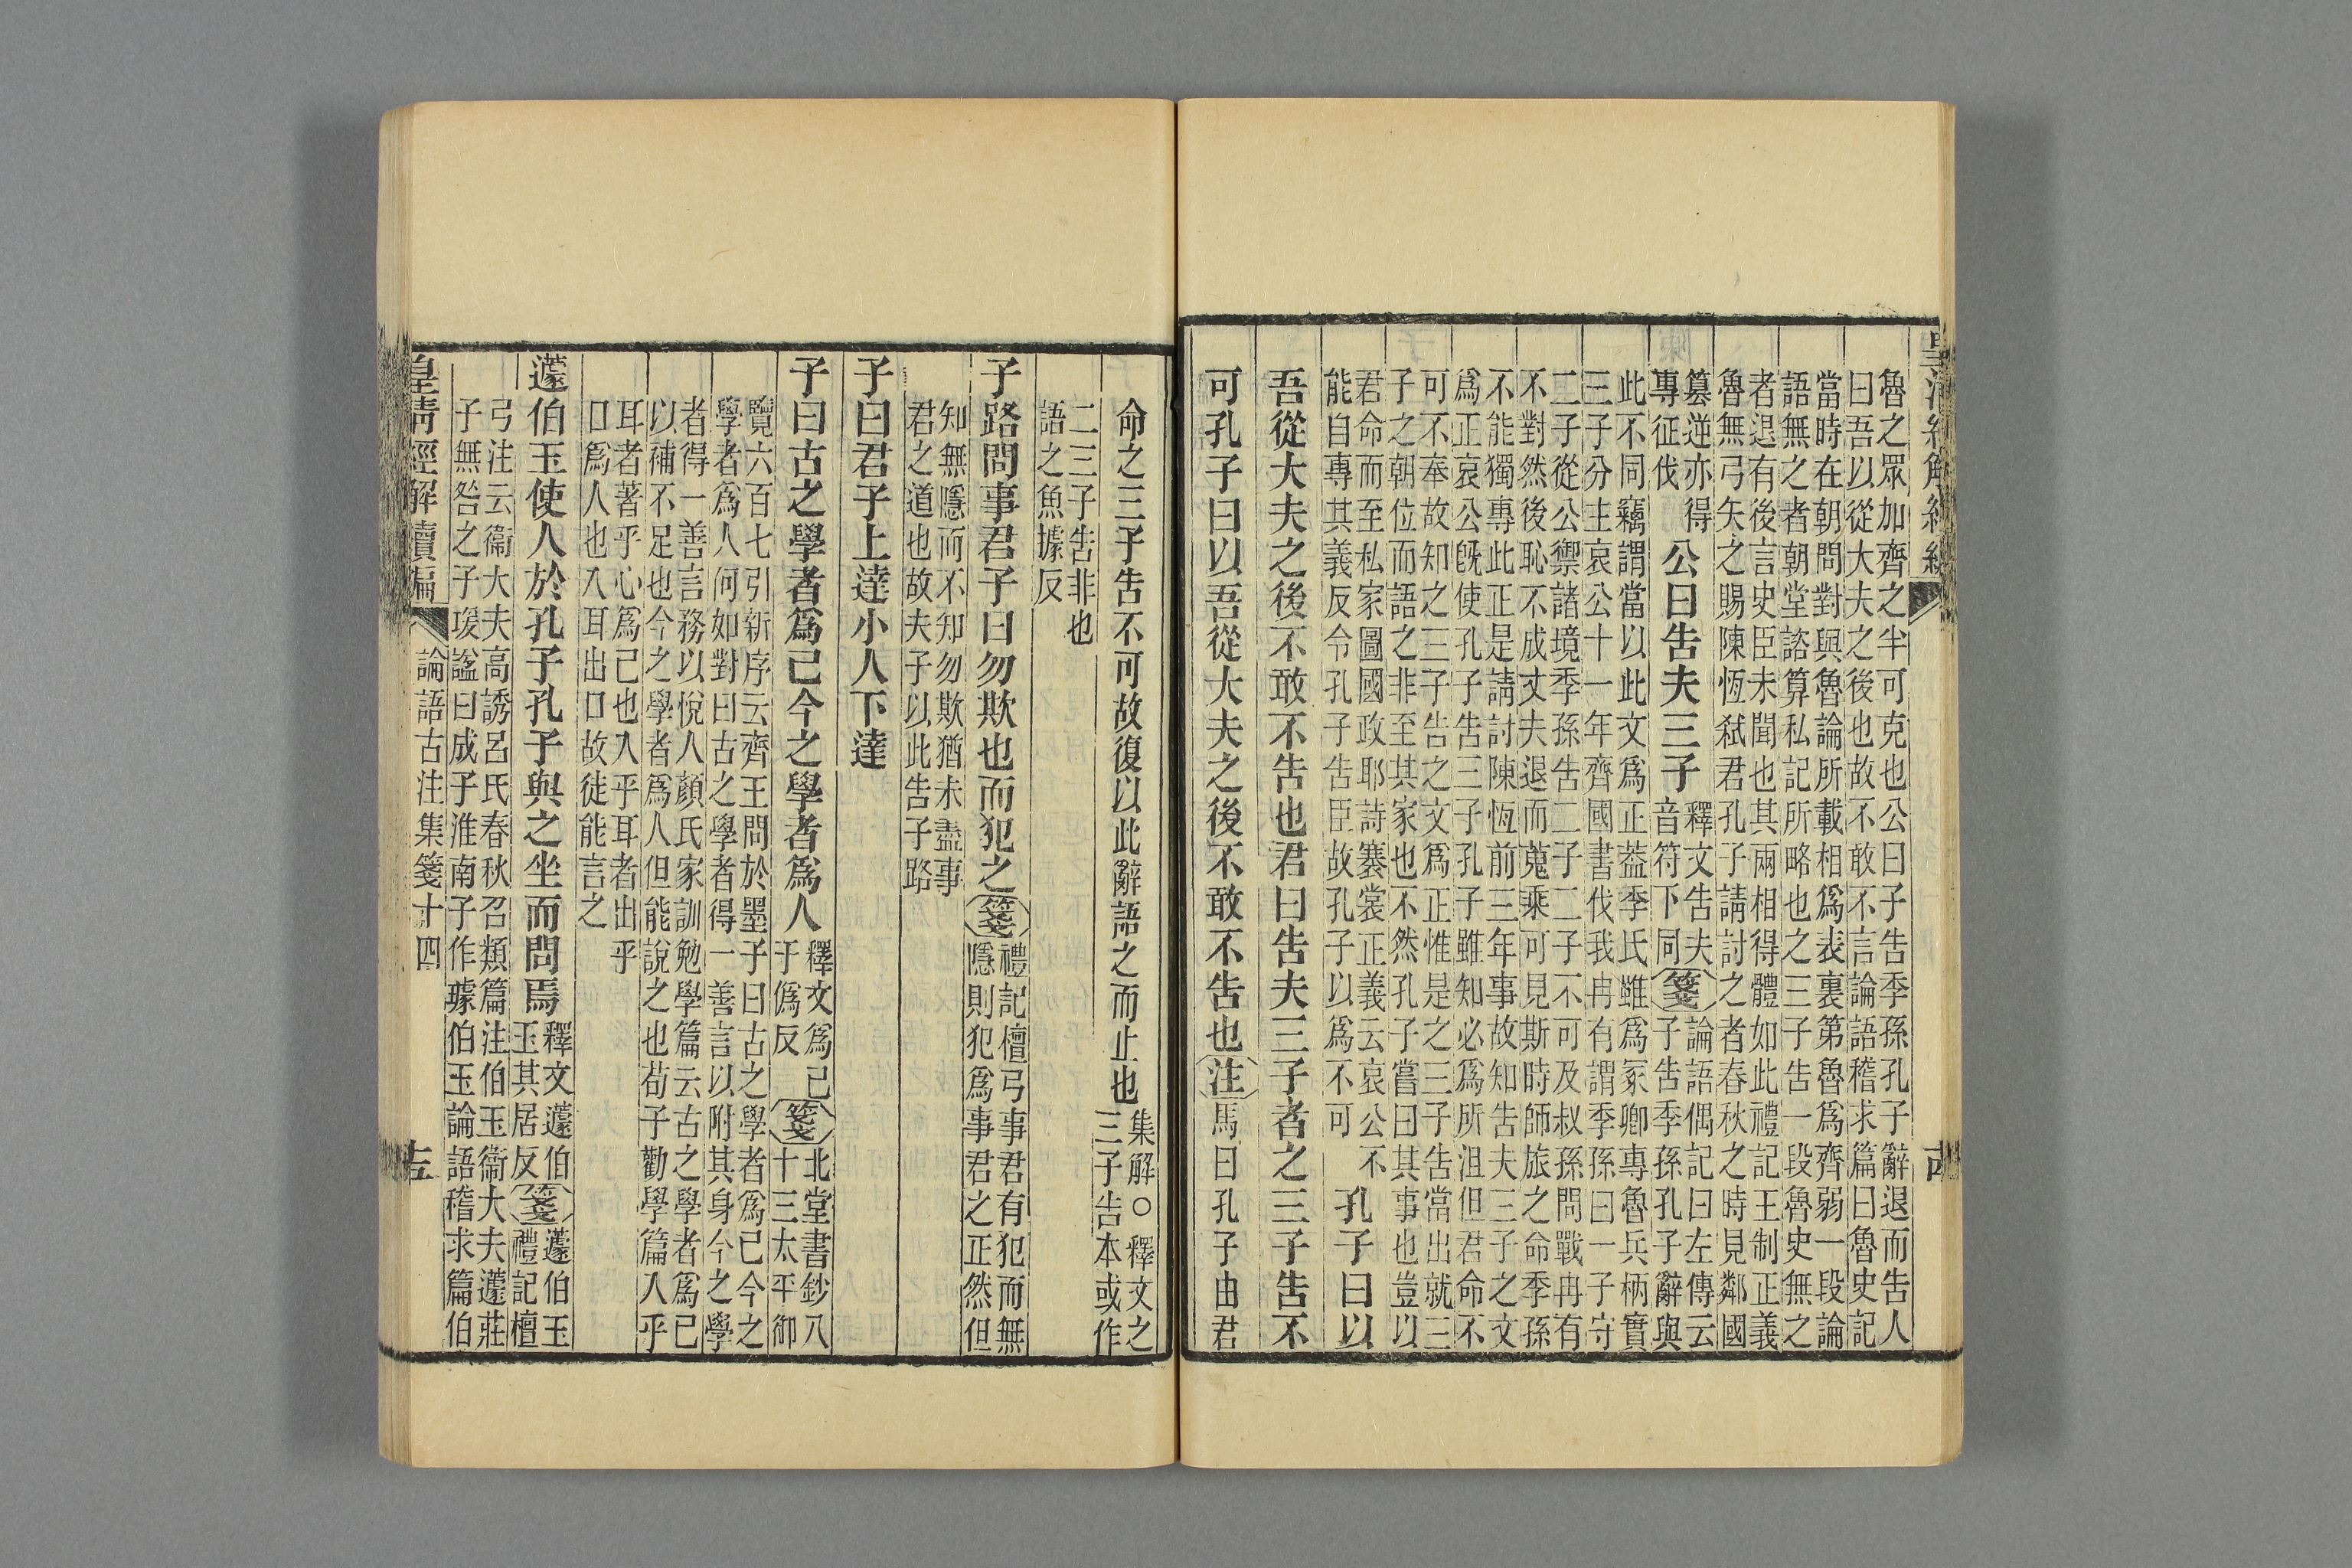 魯之眾加齊之半可克也公曰子告季孫孔子辭退而告人
曰吾以從大夫之後也故不敢不言論語稽求篇曰魯史記
當時在朝問對與魯論所載相爲表裏第魯爲齊弱一段論
語無之者朝堂諮算私記所略也之三子告一段魯史無之
者退有後言史臣未聞也其兩相得體如此禮記王制正義
魯無弓矢之賜陳恆弒君孔子請討之者春秋之時見鄰國
篡逆亦得
專征伐
公曰告夫三子
釋文告夫
音符下同
箋
論語偶記曰左傳云
子告季孫孔子辭與
此不同竊謂當以此文爲正葢季氏雖爲冢卿專魯兵柄實
三子分主哀公十一年齊國書伐我冉有謂季孫曰一子守
二子從公禦諸境季孫告二子二子不可及叔孫問戰冉有
不對然後恥不成丈夫退而蒐乘可見斯時師旅之命季孫
不能獨專此正是請討陳恆前三年事故知告夫三子之文
爲正哀公旣使孔子告三子孔子雖知必爲所沮但君命不
可不奉故知之三子告之文爲正惟是之三子告當出就三
子之朝位而語之非至其家也不然孔子嘗曰其事也豈以
君命而至私家圖國政耶詩褰裳正義云哀公不
能自專其義反令孔子告臣故孔子以爲不可
孔子曰以
吾從大夫之後不敢不告也君曰告夫三子者之三子告不
可孔子曰以吾從大夫之後不敢不告也
注
馬曰孔子由君
命之三子告不可故復以此辭語之而止也
集解○釋文之
三子告本或作
二三子告非也
語之魚據反
子路問事君子曰勿欺也而犯之
箋
禮記檀弓事君有犯而無
隱則犯爲事君之正然但
知無隱而不知勿欺猶未盡事
君之道也故夫子以此告子路
子曰君子上達小人下達
子曰古之學者爲己今之學者爲人
釋文爲己
于僞反
箋
北堂書鈔八
十三太平御
覽六百七引新序云齊王問於墨子曰古之學者爲己今之
學者爲人何如對曰古之學者得一善言以附其身今之學
者得一善言務以悅人顏氏家訓勉學篇云古之學者爲己
以補不足也今之學者爲人但能說之也荀子勸學篇入乎
耳者著乎心爲己也入乎耳者出乎
口爲人也入耳出口故徒能言之
蘧伯玉使人於孔子孔子與之坐而問焉
釋文蘧伯
玉其居反
箋
蘧伯玉
禮記檀
弓注云衞大夫高誘呂氏春秋召類篇注伯玉衞大夫蘧莊
子無咎之子瑗諡曰成子淮南子作璩伯玉論語稽求篇伯
皇清經解續編
論語古注集箋十四